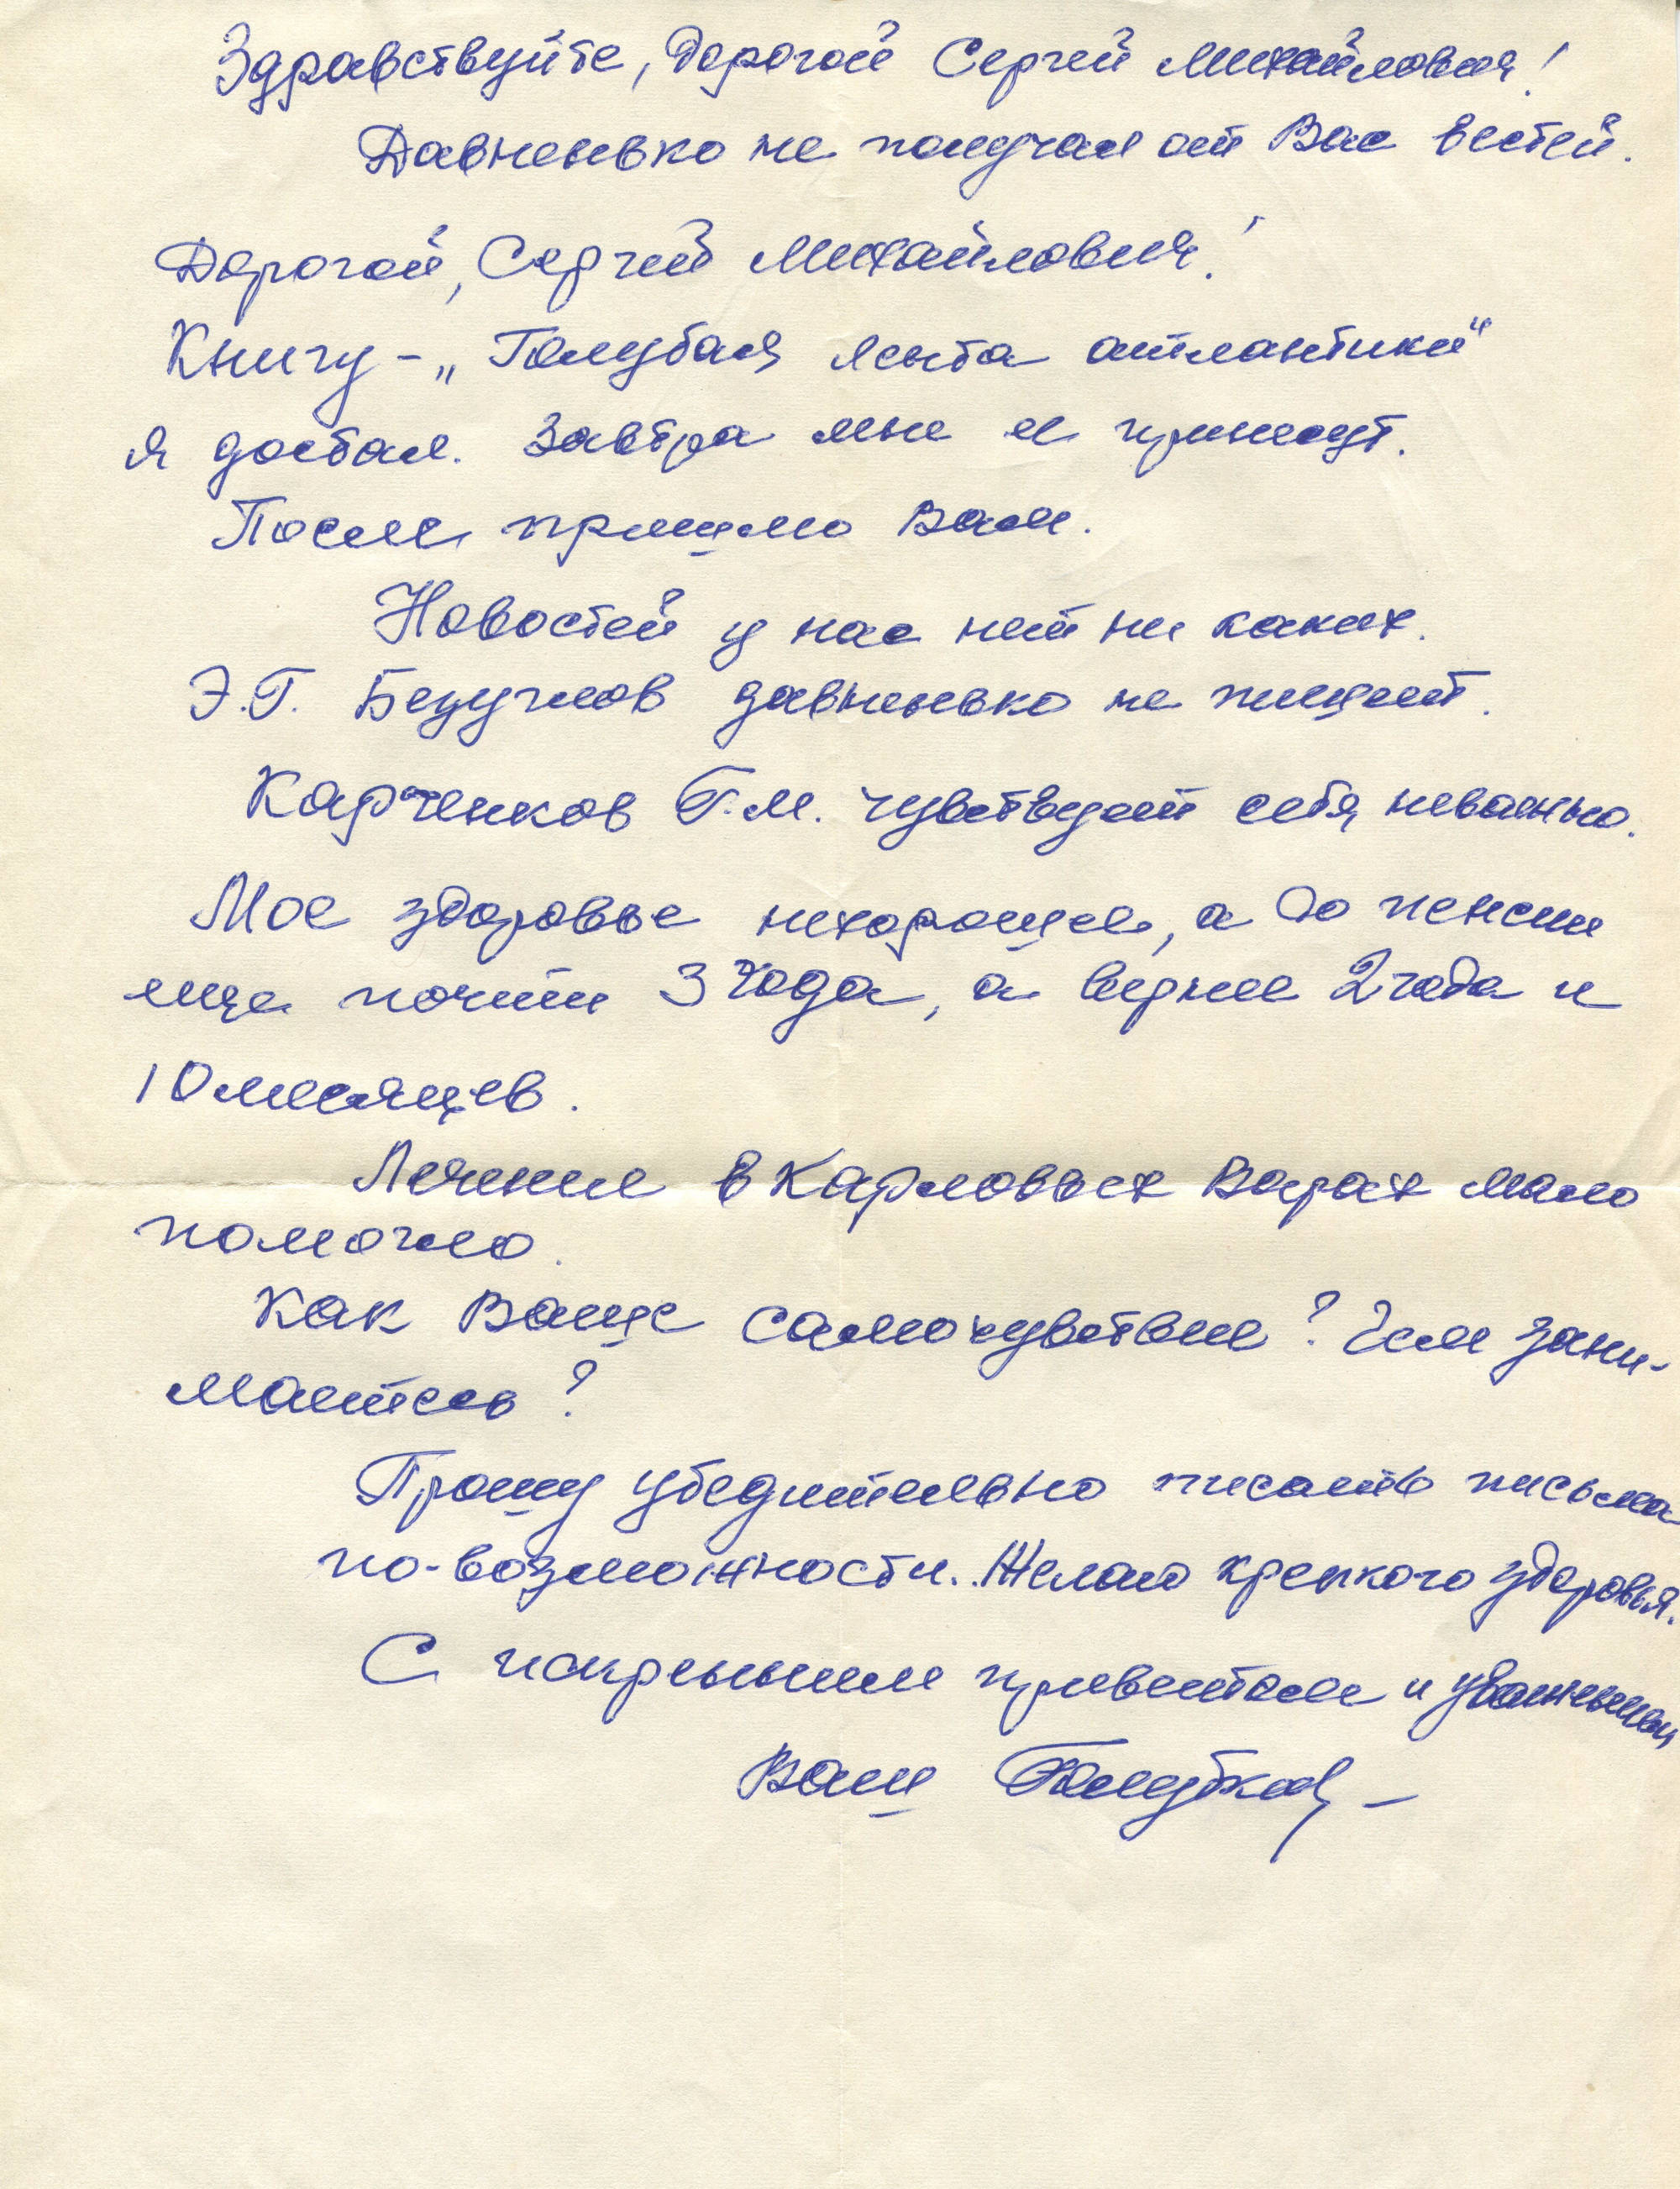 Здравствуйте, Дорогой Сергей Михайлович!
Давненько не получал от Вас вестей.
Дорогой, Сергей Михайлович!
Книгу - „Голубая лента атлантики"
я достал. Завтра мне ее принесут.
После пришлю Вам.
Новостей у нас нет ни каких.
Э.Г. давненько не пишет.
Карченков Г.М. чувствует себя неважно.
Мое здоровье нехорошее, а до пенсии
еще почти 3 года, а вернее 2 года и
10 месяцев.
Лечение в Карловых Варах мало
помогло.
Как Ваше самочувствие? Чем зани-
маетесь?
Прошу убедительно писать письма
по-возможности. Желаю крепкого здоровья.
С искренним приветом и уважением
Ваш Голубков